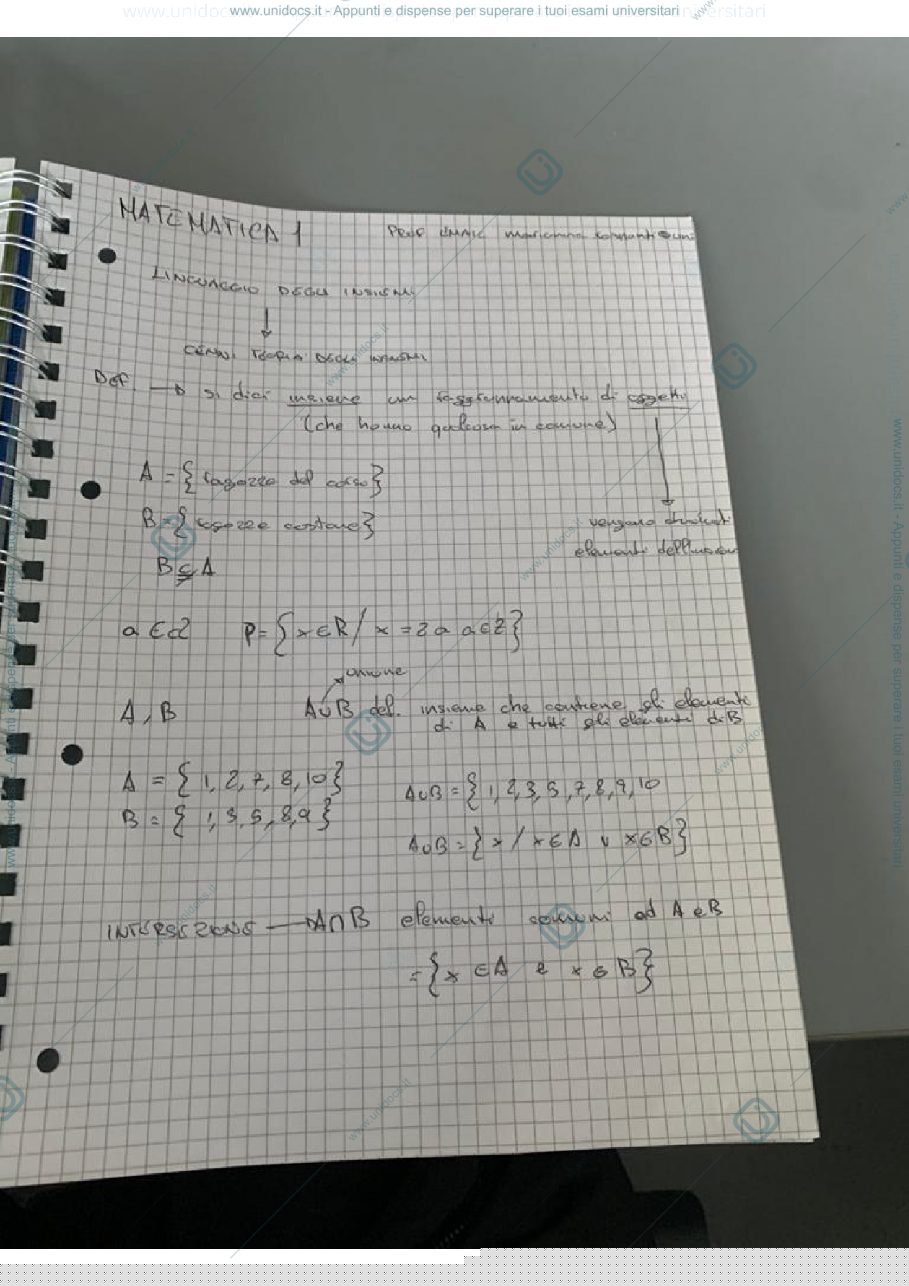 www.unidocs.it - Appunti e dispense per superare i tuoi esami universitari
MATEMATICA 1
PROF
LINGUAGGIO DEGLI INSIEMI
CENNI TEORIA DEGLI INSIEMI
DEF → si dici insieme un raggruppamento di oggetti
(che hanno qualcosa in comune)
A = { ragazze del corso}
B = { ragazze castane}
vengono
elementi dell'insieme
B ⊆ A
a ∈ P = { x ∈ R / x = 2a a ∈ Z }
unione
A, B A∪B def. insieme che contiene gli elementi
di A e tutti gli elementi di B
A = { 1, 2, 7, 8, 10 }
A∪B = { 1, 2, 3, 5, 7, 8, 9, 10
B = { 1, 3, 5, 8, 9 }
A∪B = { x / x ∈ A ∨ x ∈ B }
INTERSEZIONE → A∩B elementi comuni ad A e B
= { x ∈ A e x ∈ B }
www.unidocs.it - Appunti e dispense per superare i tuoi esami universitari